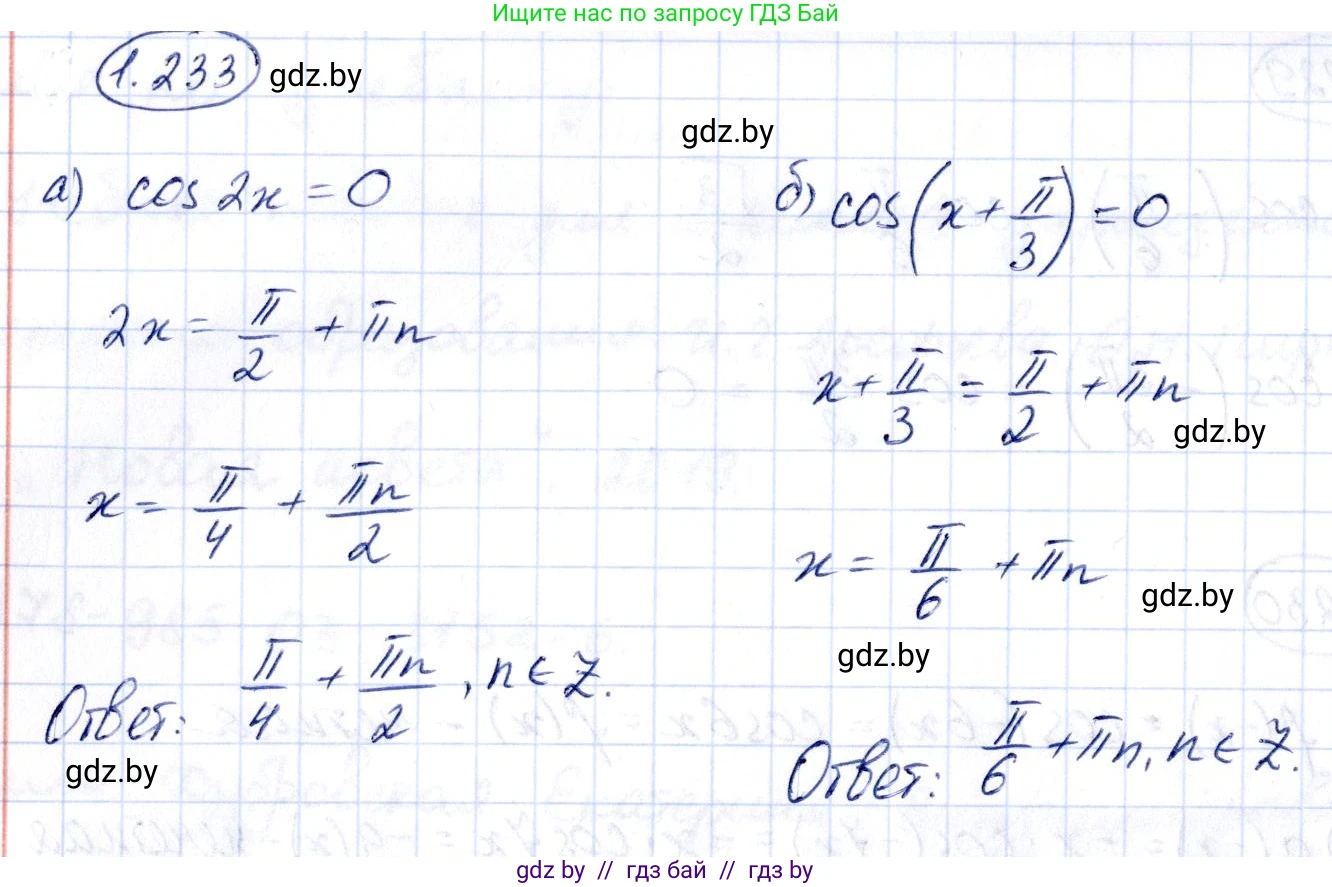 Ищите нас по запросу ГДЗ Бай
1.233 gdz.by
gdz.by
а) cos 2x = 0
2x = π/2 + πn
x = π/4 + πn/2
Ответ: π/4 + πn/2, n ∈ Z.
gdz.by
б) cos(x + π/3) = 0
x + π/3 = π/2 + πn
gdz.by
x = π/6 + πn
gdz.by
gdz.by
Ответ: π/6 + πn, n ∈ Z.
gdz.by // гдз бай // gdz.by